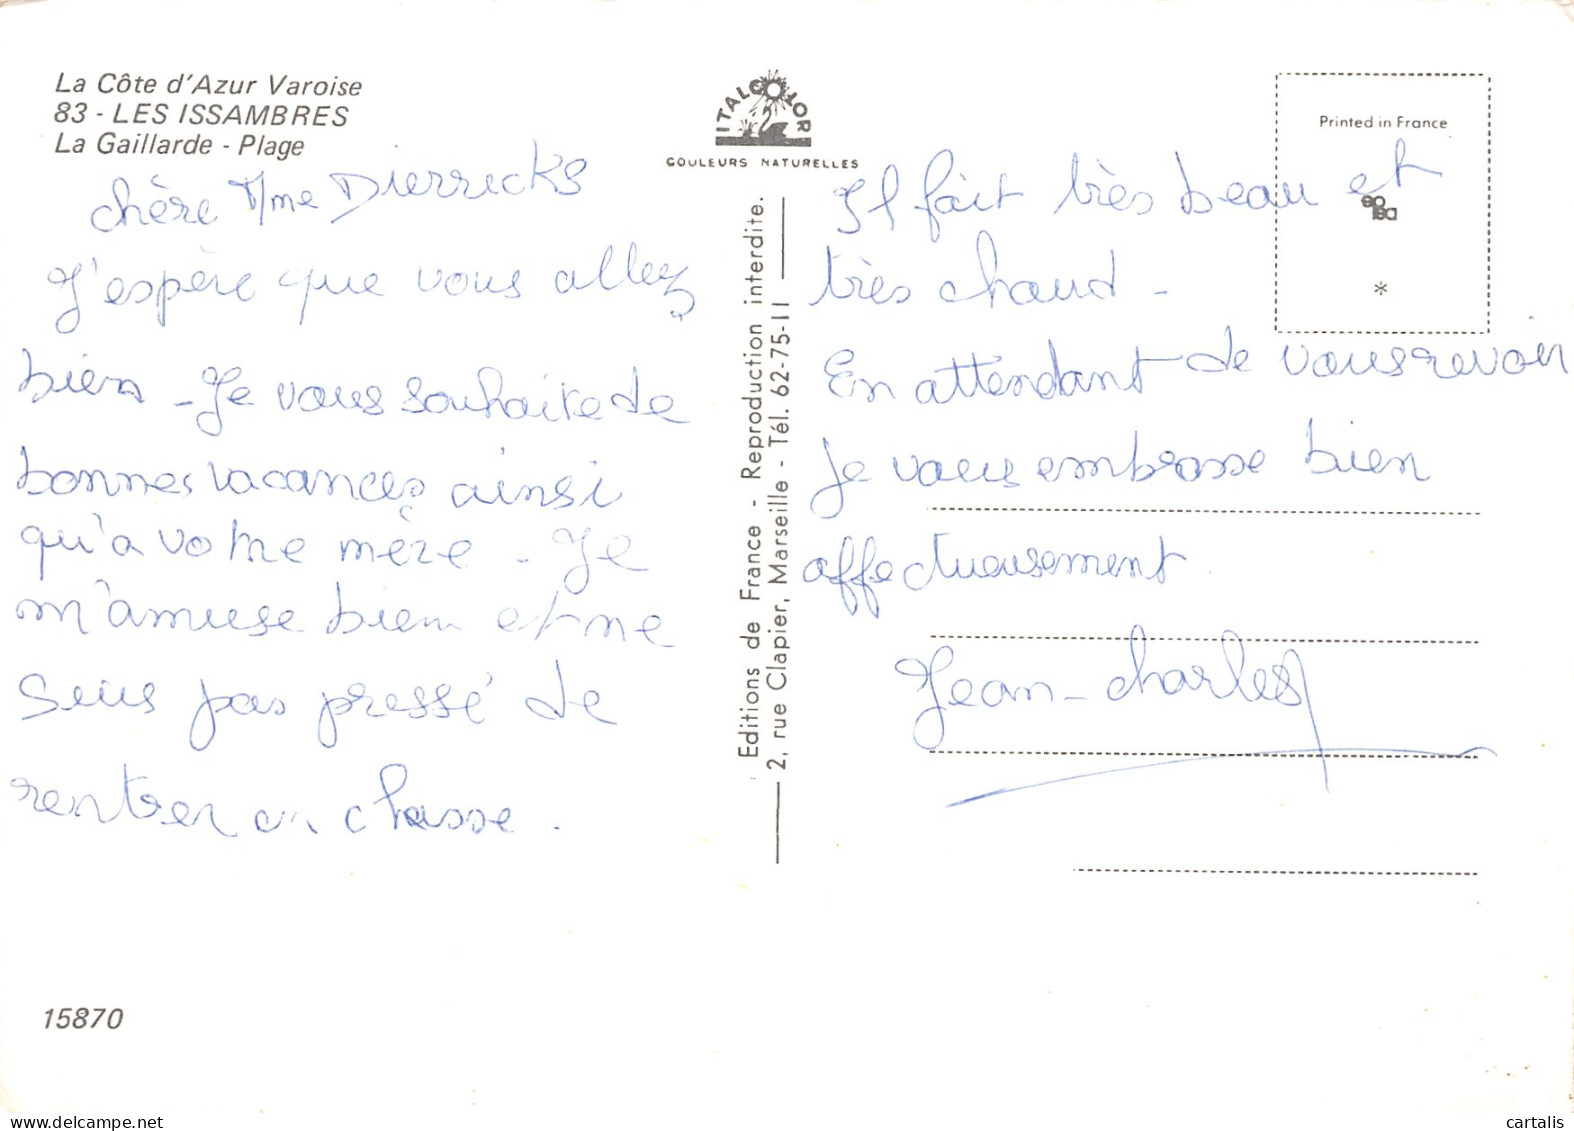 La Côte d'Azur Varoise
83 - LES ISSAMBRES
La Gaillarde - Plage
chère Mme Dierricks
J'espère que vous allez
bien - Je vous souhaite de
bonnes vacances ainsi
qu'à votre mère - Je
m'amuse bien et ne
suis pas pressé de
rentrer en classe.
15870
ITALCOLOR
COULEURS NATURELLES
Editions de France - Reproduction interdite.
2, rue Clapier, Marseille - Tél. 62-75-11
Printed in France
*
Il fait très beau et
très chaud -
En attendant de vous revoir
Je vous embrasse bien
affectueusement
Jean-Charles
delcampe.net
cartalis